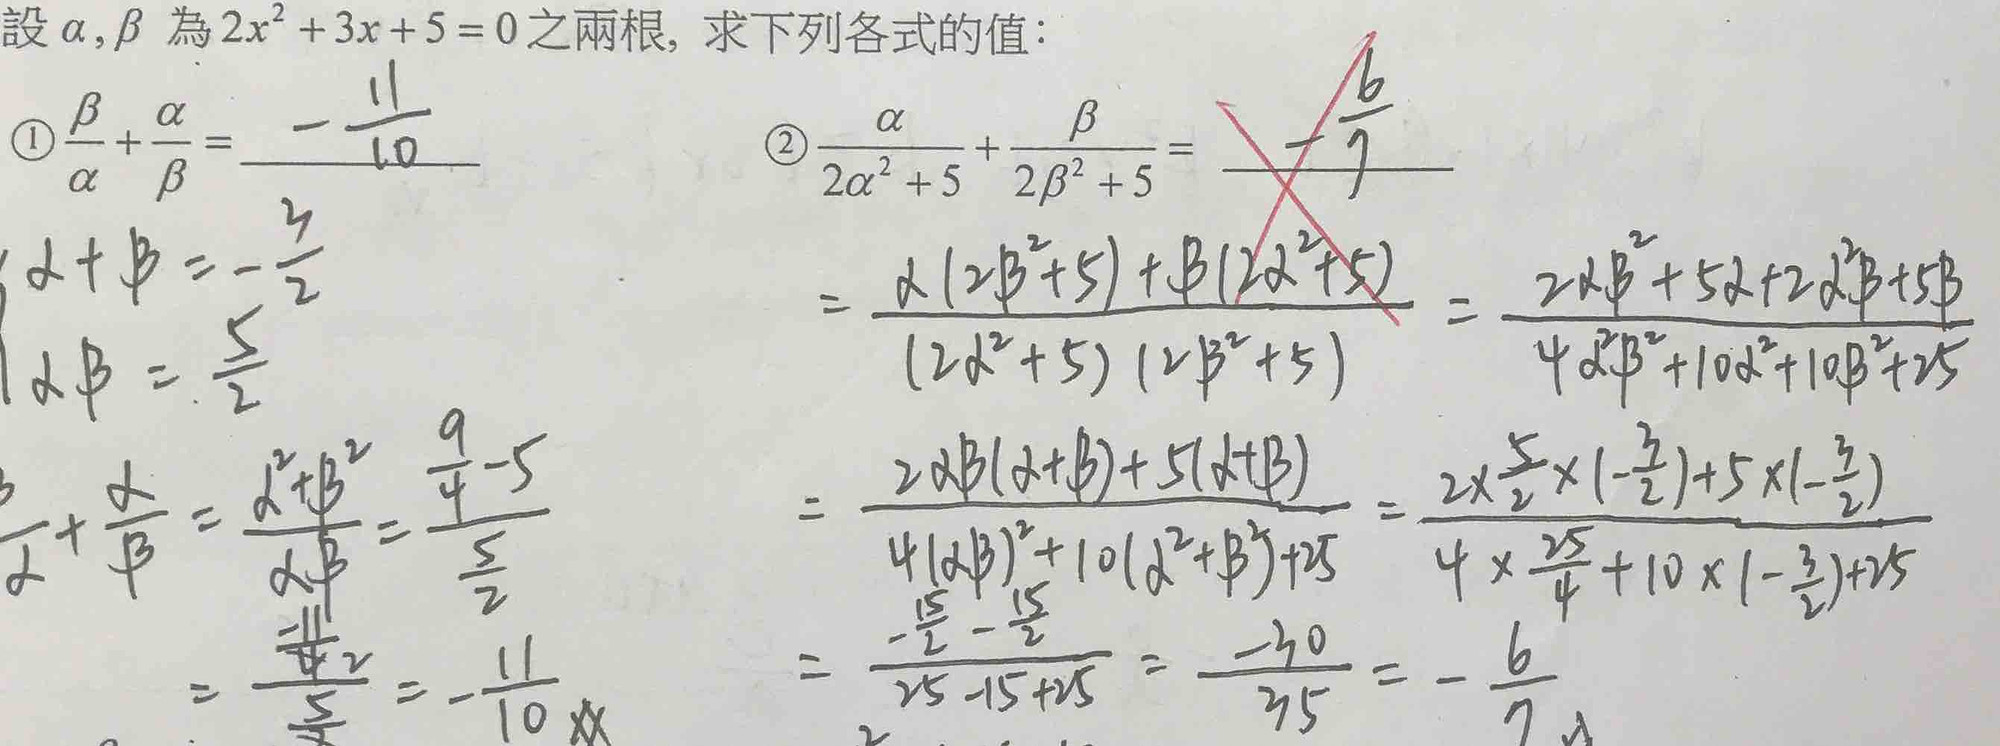 設 α, β 為 2x² + 3x + 5 = 0 之兩根, 求下列各式的值:
① β/α + α/β = -11/10
② α/(2α² + 5) + β/(2β² + 5) = -6/7
α + β = -3/2
αβ = 5/2
β/α + α/β = (α² + β²)/(αβ) = (9/4 - 5)/(5/2)
= -11/10
= (α(2β² + 5) + β(2α² + 5))/((2α² + 5)(2β² + 5)) = (2αβ² + 5α + 2α²β + 5β)/(4α²β² + 10α² + 10β² + 25)
= (2αβ(α + β) + 5(α + β))/(4(αβ)² + 10(α² + β²) + 25) = (2 × 5/2 × (-3/2) + 5 × (-3/2))/(4 × 25/4 + 10 × (-3/2) + 25)
= (-15/2 - 15/2)/(25 - 15 + 25) = -30/35 = -6/7